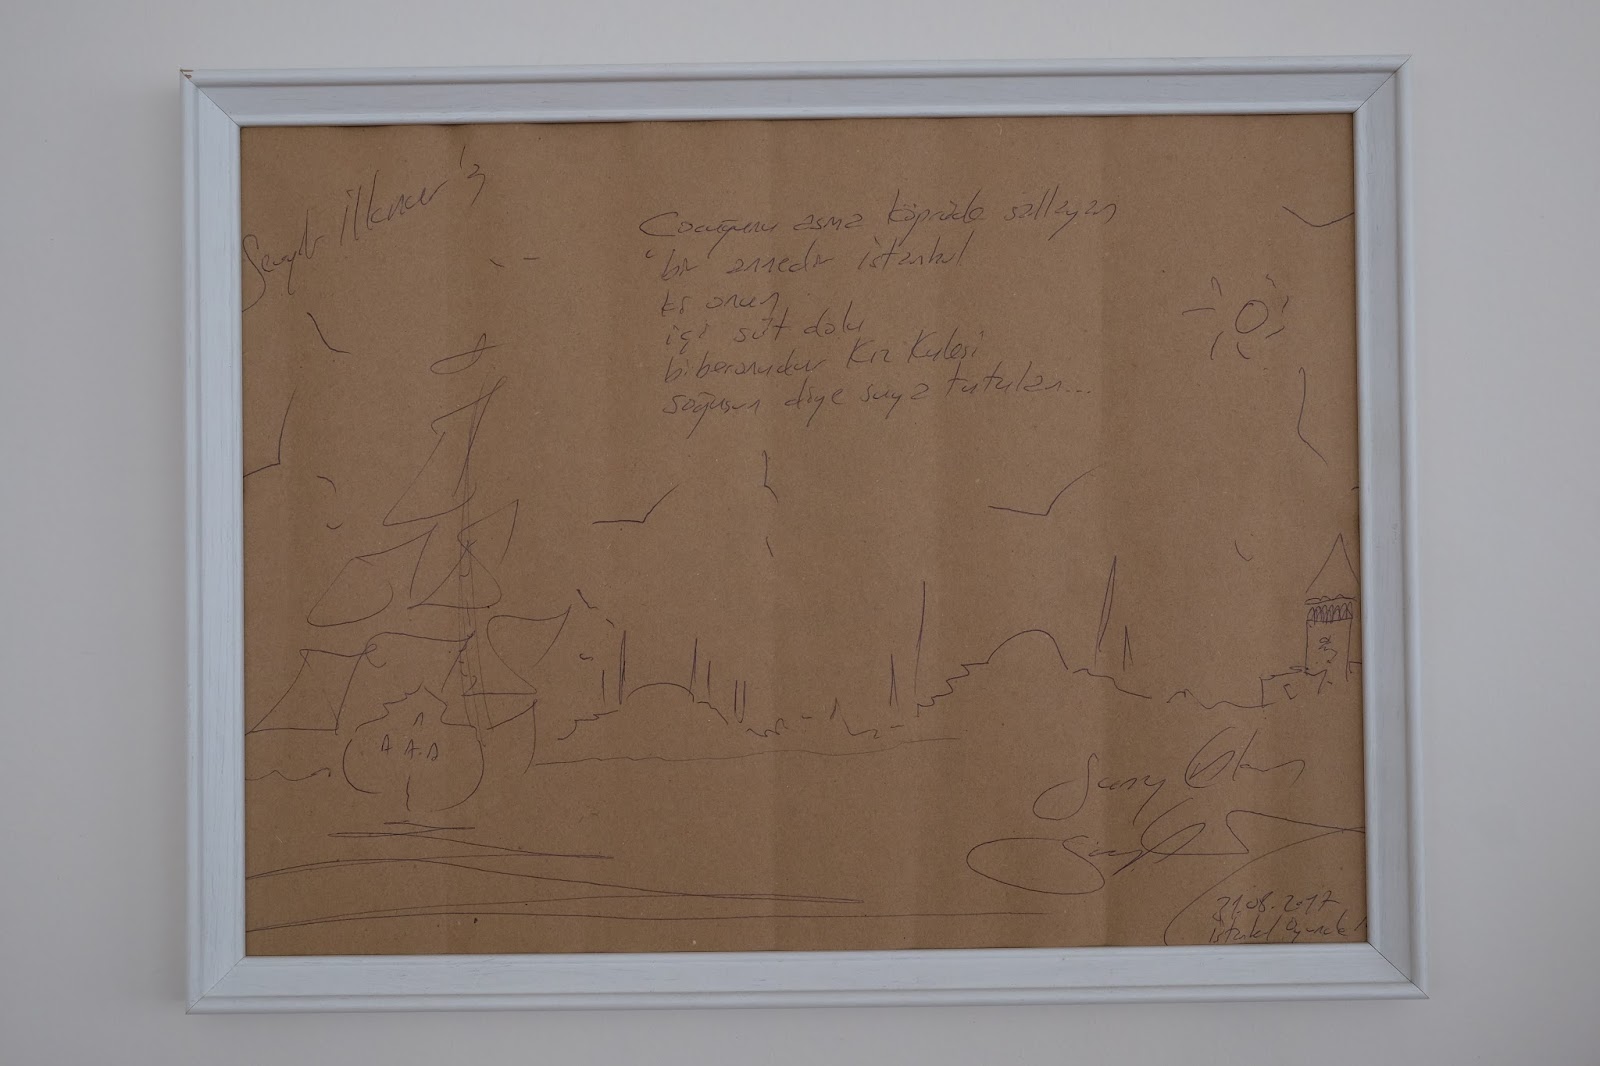 Sevgili İlknur'a
Çocuğunu asma köprüde sallayan
bir annedir İstanbul
ki onun
içi süt dolu
biberonudur Kız Kulesi
soğusun diye suya tutulan...
Sunay Akın
31.08.2017
İstanbul Oyuncak